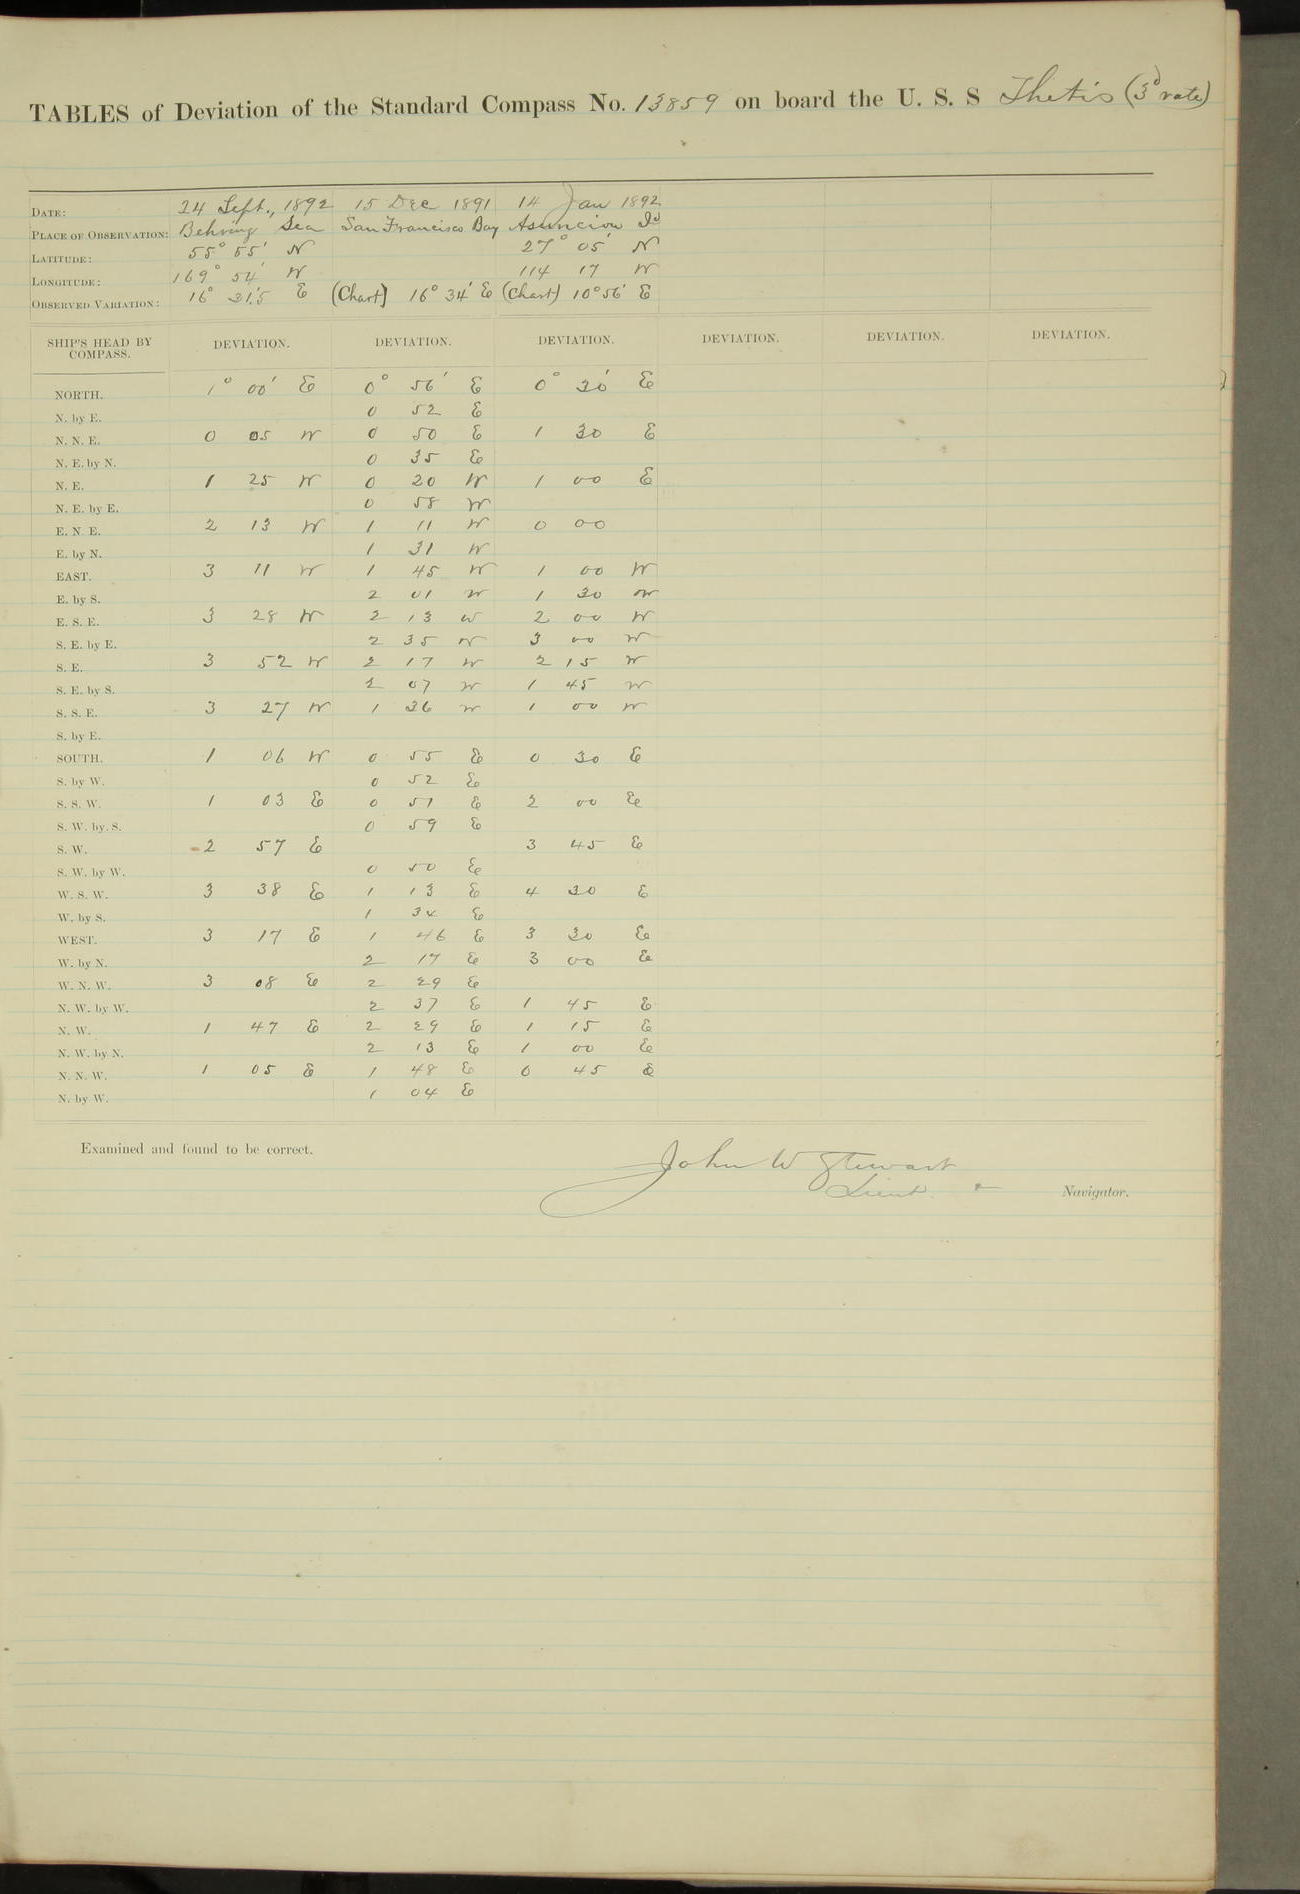 TABLES of Deviation of the Standard Compass No. 13859 on board the U. S. S Thetis (3d rate)
DATE: 24 Sept., 1892 15 Dec 1891 14 Jan 1892
PLACE OF OBSERVATION: Behring Sea San Francisco Bay Asuncion Id
LATITUDE: 55° 55' N 27° 05' N
LONGITUDE: 169° 54' W 114 17 W
OBSERVED VARIATION: 16° 31'.5 E (Chart) 16° 34' E (Chart) 10° 56' E
SHIP'S HEAD BY COMPASS. DEVIATION. DEVIATION. DEVIATION. DEVIATION. DEVIATION. DEVIATION.
NORTH. 1° 00' E 0° 56' E 0° 30' E
N. by E. 0 52 E
N. N. E. 0 05 W 0 50 E 1 30 E
N. E. by N. 0 35 E
N. E. 1 25 W 0 20 W 1 00 E
N. E. by E. 0 58 W
E. N. E. 2 13 W 1 11 W 0 00
E. by N. 1 31 W
EAST. 3 11 W 1 45 W 1 00 W
E. by S. 2 01 W 1 30 W
E. S. E. 3 28 W 2 13 W 2 00 W
S. E. by E. 2 35 W 3 00 W
S. E. 3 52 W 2 17 W 2 15 W
S. E. by S. 2 07 W 1 45 W
S. S. E. 3 27 W 1 36 W 1 00 W
S. by E.
SOUTH. 1 06 W 0 55 E 0 30 E
S. by W. 0 52 E
S. S. W. 1 03 E 0 51 E 2 00 E
S. W. by. S. 0 59 E
S. W. 2 57 E 3 45 E
S. W. by W. 0 50 E
W. S. W. 3 38 E 1 13 E 4 30 E
W. by S. 1 34 E
WEST. 3 17 E 1 46 E 3 30 E
W. by N. 2 17 E 3 00 E
W. N. W. 3 08 E 2 29 E
N. W. by W. 2 37 E 1 45 E
N. W. 1 47 E 2 29 E 1 15 E
N. W. by N. 2 13 E 1 00 E
N. N. W. 1 05 E 1 48 E 0 45 E
N. by W. 1 04 E
Examined and found to be correct. John W Stewart
Lieut. & Navigator.